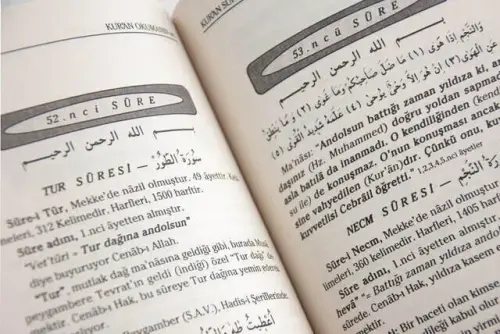 KUR'AN OKUMANIN
52.nci SÛRE
بسم الله الرحمن الرحيم
TUR SÛRESİ - سُورَةُ الطُّورِ
Sûre-i Tûr, Mekke'de nâzil olmuştur. 49 âyettir. Keli-
meleri, 312 Kelimedir. Harfleri, 1500 harftir.
Sûre adını, 1.nci âyetten almıştır.
"Vet'tûri - Tur dağına andolsun"
diye buyuruyor Cenâb-ı Allah.
"Tur", mutlak dağ ma'nâsına geldiği gibi, burada Musâ
peygambere Tevrat'ın geldi (İndiği) özel "Tur dağı" de-
mektir. Cenâb-ı Hak, bu sûreye Tur dağına yemin ederek
Peygamber (S.A.V.), Hadis-i Şeriflerinde,
KUR'AN SÛRE
53.ncü SÛRE
بسم الله الرحمن الرحيم
وَالنَّجْمِ إِذَا هَوَى (١) مَا ضَلَّ صَاحِبُكُمْ وَمَا غَوَى (٢) وَمَا يَنْطِقُ
عَنِ الْهَوَى (٣) إِنْ هُوَ إِلَّا وَحْيٌ يُوحَى (٤) عَلَّمَهُ شَدِيدُ الْقُوَى (٥)
Ma'nâsı: "Andolsun battığı zaman yıldıza ki, ar-
daşınız (Hz. Muhammed) doğru yoldan sapmadı
asla batıla da inanmadı. O kendiliğinden (kendi
su ile) de konuşmaz. O'nun konuşması ancak
sine vahyedilen (Kur'ân)dır. Çünkü onu, ku
kuvvetlisi Cebrâil öğretti." 1,2,3,4,5.nci âyetler
NECM SÛRESİ - سُورَةُ النَّجْمِ
Sûre-i Necm, Mekke'de nâzil olmuştur.
meleri, 360 kelimedir. Harfleri, 1405 har
Sûre adını, 1.nci âyetten almıştır.
hevâ" "- Battığı zaman yıldıza andol
sûrede. Cenâb-ı Hak, yıldıza kasem
bir haceti olan kimse